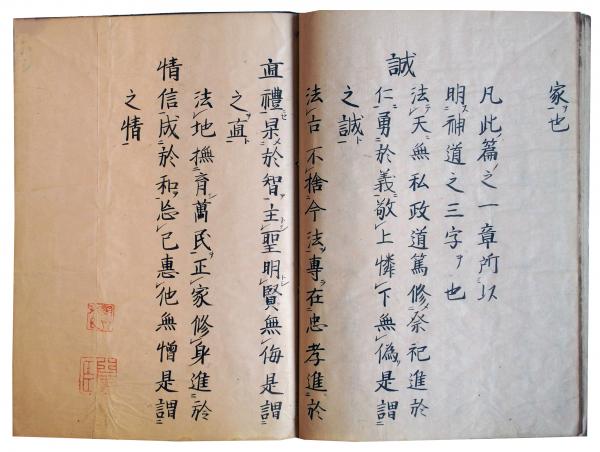 家也
凡此篇之一章所以
明神道之三字也
誠
法天無私政道篤修祭祀進於
仁勇於義敬上憐下無偽是謂
之誠
直
法古不捨今法專在忠孝進於
禮杲於智主聖明賢無侮是謂
之直
情
法地撫育萬民正家修身進於
信成於和忘己惠他無憎是謂
之情